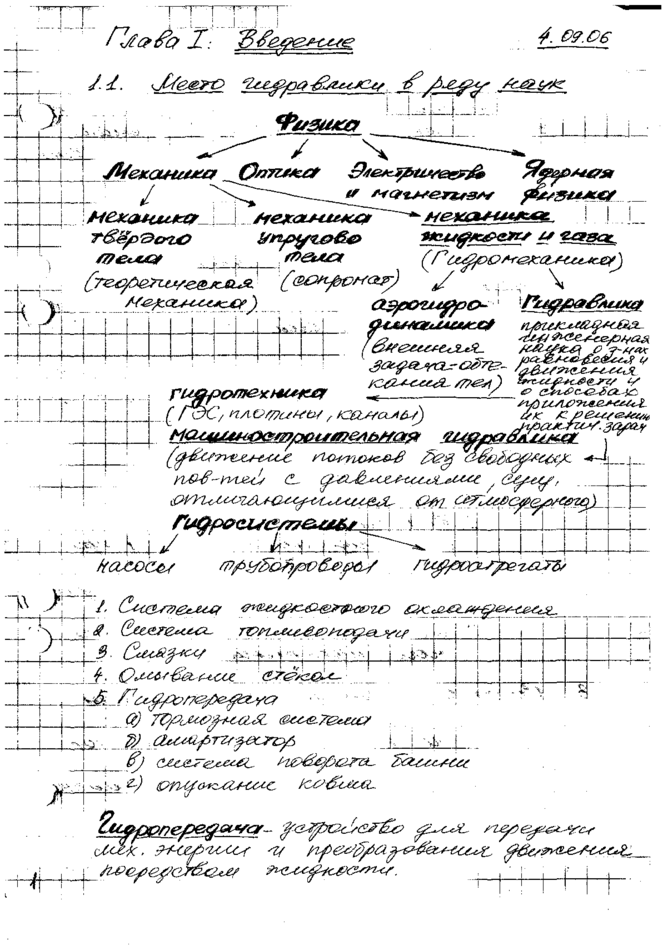 Глава I: Введение 4.09.06
1.1. Место гидравлики в ряду наук
Физика
Механика Оптика Электричество Ядерная
и магнетизм физика
механика механика механика
твёрдого упругово жидкости и газа
тела тела (Гидромеханика)
(теоретическая (сопромат)
механика)
аэрогидро- Гидравлика
динамика прикладная
(внешняя инженерная
задача-обте- наука о з-нах
кания тел) равновесия и
движения
жидкости и
о способах
приложения
их к решению
практич. задач
гидротехника
(ГЭС, плотины, каналы)
машиностроительная гидравлика
(движение потоков без свободных
пов-тей с давлениями, сущ.
отличающимися от атмосферного)
Гидросистемы
насосы трубопроводы гидроагрегаты
1. Система жидкостного охлаждения
2. Система топливоподачи
3. Смазки
4. Омывание стёкол
5. Гидропередача
а) тормозная система
б) амартизатор
в) система поворота башни
г) опускание ковша
Гидропередача - устройство для передачи
мех. энергии и преобразования движения
посредствам жидкости.
1